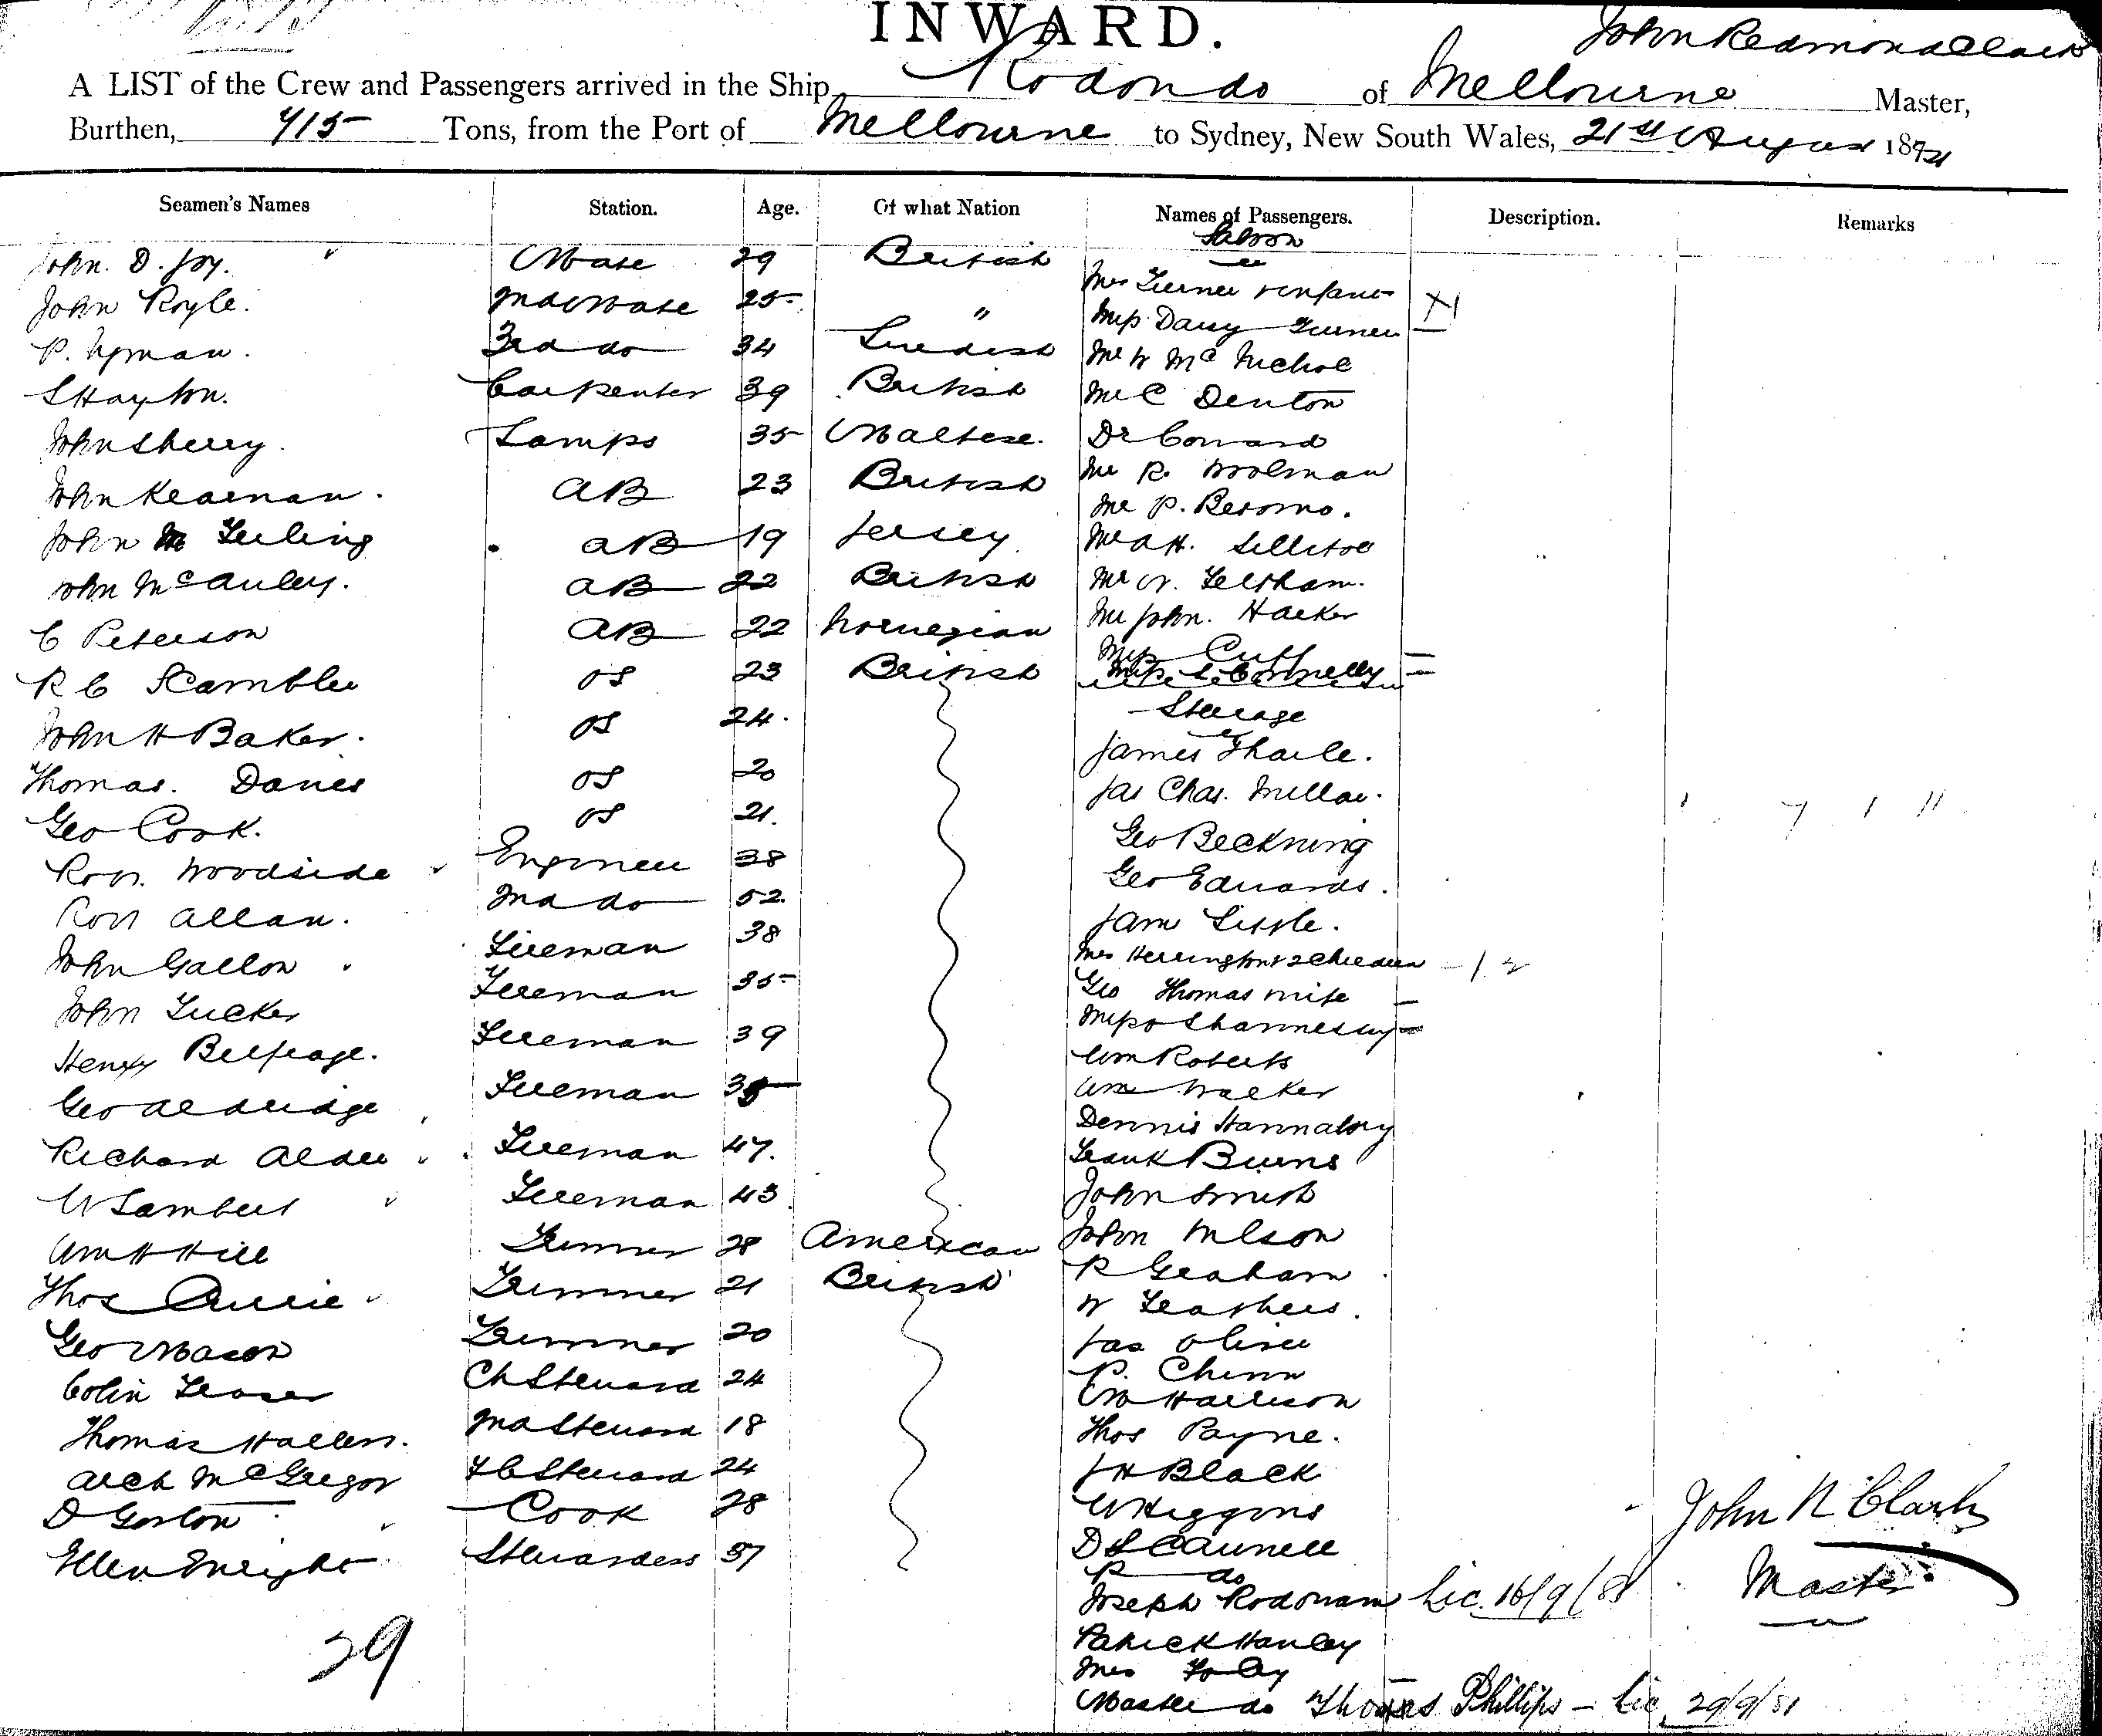 INWARD.
John Redmond Clark
A LIST of the Crew and Passengers arrived in the Ship Rodondo of Melbourne Master,
Burthen, 715 Tons, from the Port of Melbourne to Sydney, New South Wales, 21st August 18
Seamen's Names Station. Age. Of what Nation Names of Passengers. Description. Remarks
Saloon
John. D. Joy. Mate 29 British
Mrs Turner & infant
John Royle. 2nd Mate 25 "
Miss Daisy Turner
P. Nyman. 3rd do 34 Swedish
Mr W McNichol
S Hayton. Carpenter 39 British
Mr C Denton
John Sherry. Lamps 35 Maltese.
Dr Coward
Mr R. Woolman
John Kearnan. AB 23 British
Mr P. Besomo.
John Teeling AB 19 Jersey
Mr A H. Sillitoe
John McAuley. AB 22 British
Mr W. Feltham.
Mr John. Hacker
C Peterson AB 22 Norwegian
Miss Cutt
R C Scambler OS 23 British
Miss Connelly
Steerage
John H Baker. OS 24.
James Thaile.
Thomas. Davies OS 20
Jas Chas. Millar.
Geo Cook. OS 21.
Geo Beckning
Robt. Woodside Engineer 38
Geo Edwards.
Robt Allan. 2nd do 52.
Jam Little.
John Gallon Fireman 38
Mrs Herrington & 2 Children 1 2
John Tucker Fireman 35
Geo Thomas wife
Miss O Shannessy
Henry Belfrage. Fireman 39
Wm Roberts
Geo Aldridge Fireman
Wm Walker
Dennis Hannabry
Richard Alder Fireman 47.
Frank Burns
W Lambert Fireman 43
John Smith
Wm H Hill Trimmer 28 American
John Wilson
R Graham
Thos Currie Trimmer 21 British
W Feathers.
Geo Mason Trimmer 20
Jas Oliver
P. Chinn
Colin Fraser Ch Steward 24
M Harrison
Thomas Hallen. 2nd Steward 18
Thos Payne.
Arch McGregor F C Steward 24
J H Black
D Gorton Cook 28
W Higgins
John R Clark
D S Caunell
Ellen Enright Stewardess 37
R do
Master
Joseph Rodonam Lic. 16/9/81
29
Patrick Hanley
Mrs Foley
Master do Thomas Phillips - Lic. 29/9/81